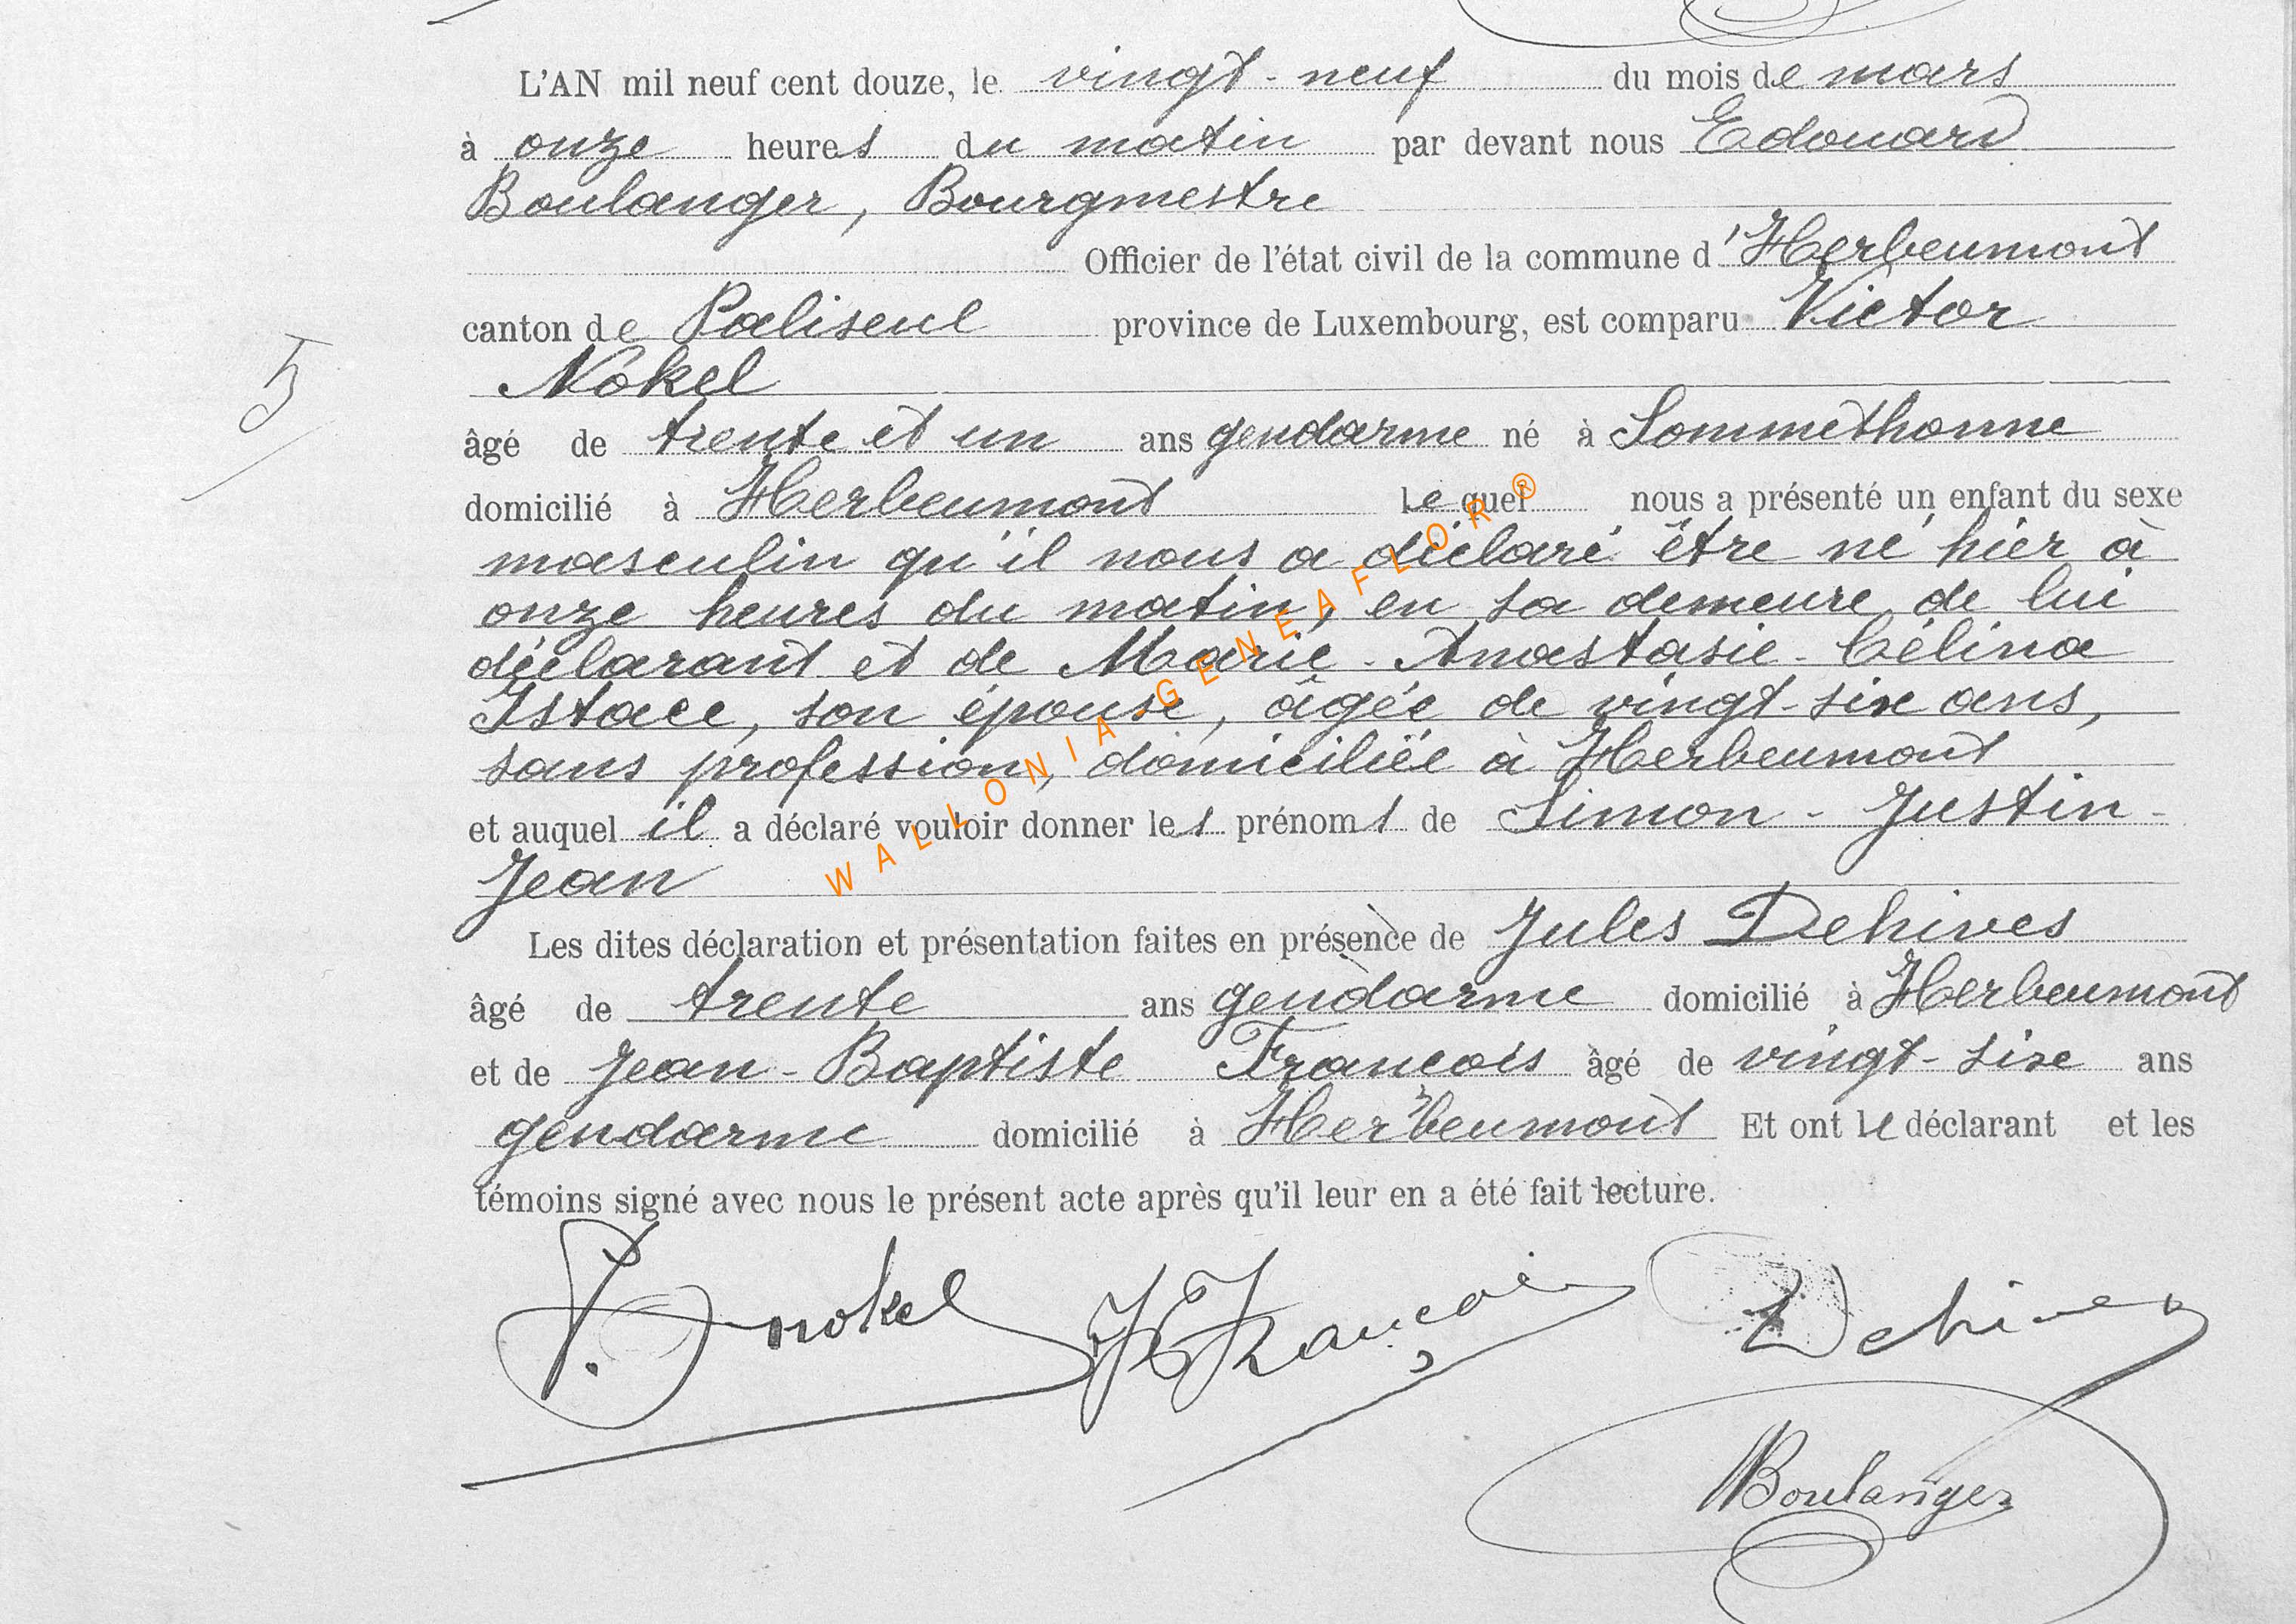 L'AN mil neuf cent douze, le vingt-neuf du mois de mars
à onze heures du matin par devant nous Edouard
Boulanger, Bourgmestre
Officier de l'état civil de la commune d'Herbeumont
canton de Paliseul province de Luxembourg, est comparu Victor
Nokel
5
âgé de trente et un ans gendarme né à Sommethonne
domicilié à Herbeumont lequel nous a présenté un enfant du sexe
masculin qu'il nous a déclaré être né hier à
onze heures du matin, en sa demeure, de lui
déclarant et de Marie-Anastasie-Célina
Istace, son épouse, âgée de vingt-six ans,
sans profession, domiciliée à Herbeumont
et auquel il a déclaré vouloir donner les prénoms de Simon-Justin-
Jean
Les dites déclaration et présentation faites en présence de Jules Dehives
âgé de trente ans gendarme domicilié à Herbeumont
et de Jean-Baptiste François âgé de vingt-six ans
gendarme domicilié à Herbeumont Et ont le déclarant et les
témoins signé avec nous le présent acte après qu'il leur en a été fait lecture.
V. Nokel JB François Dehives
Boulanger
WALLONIA-GENEAFLOR ®